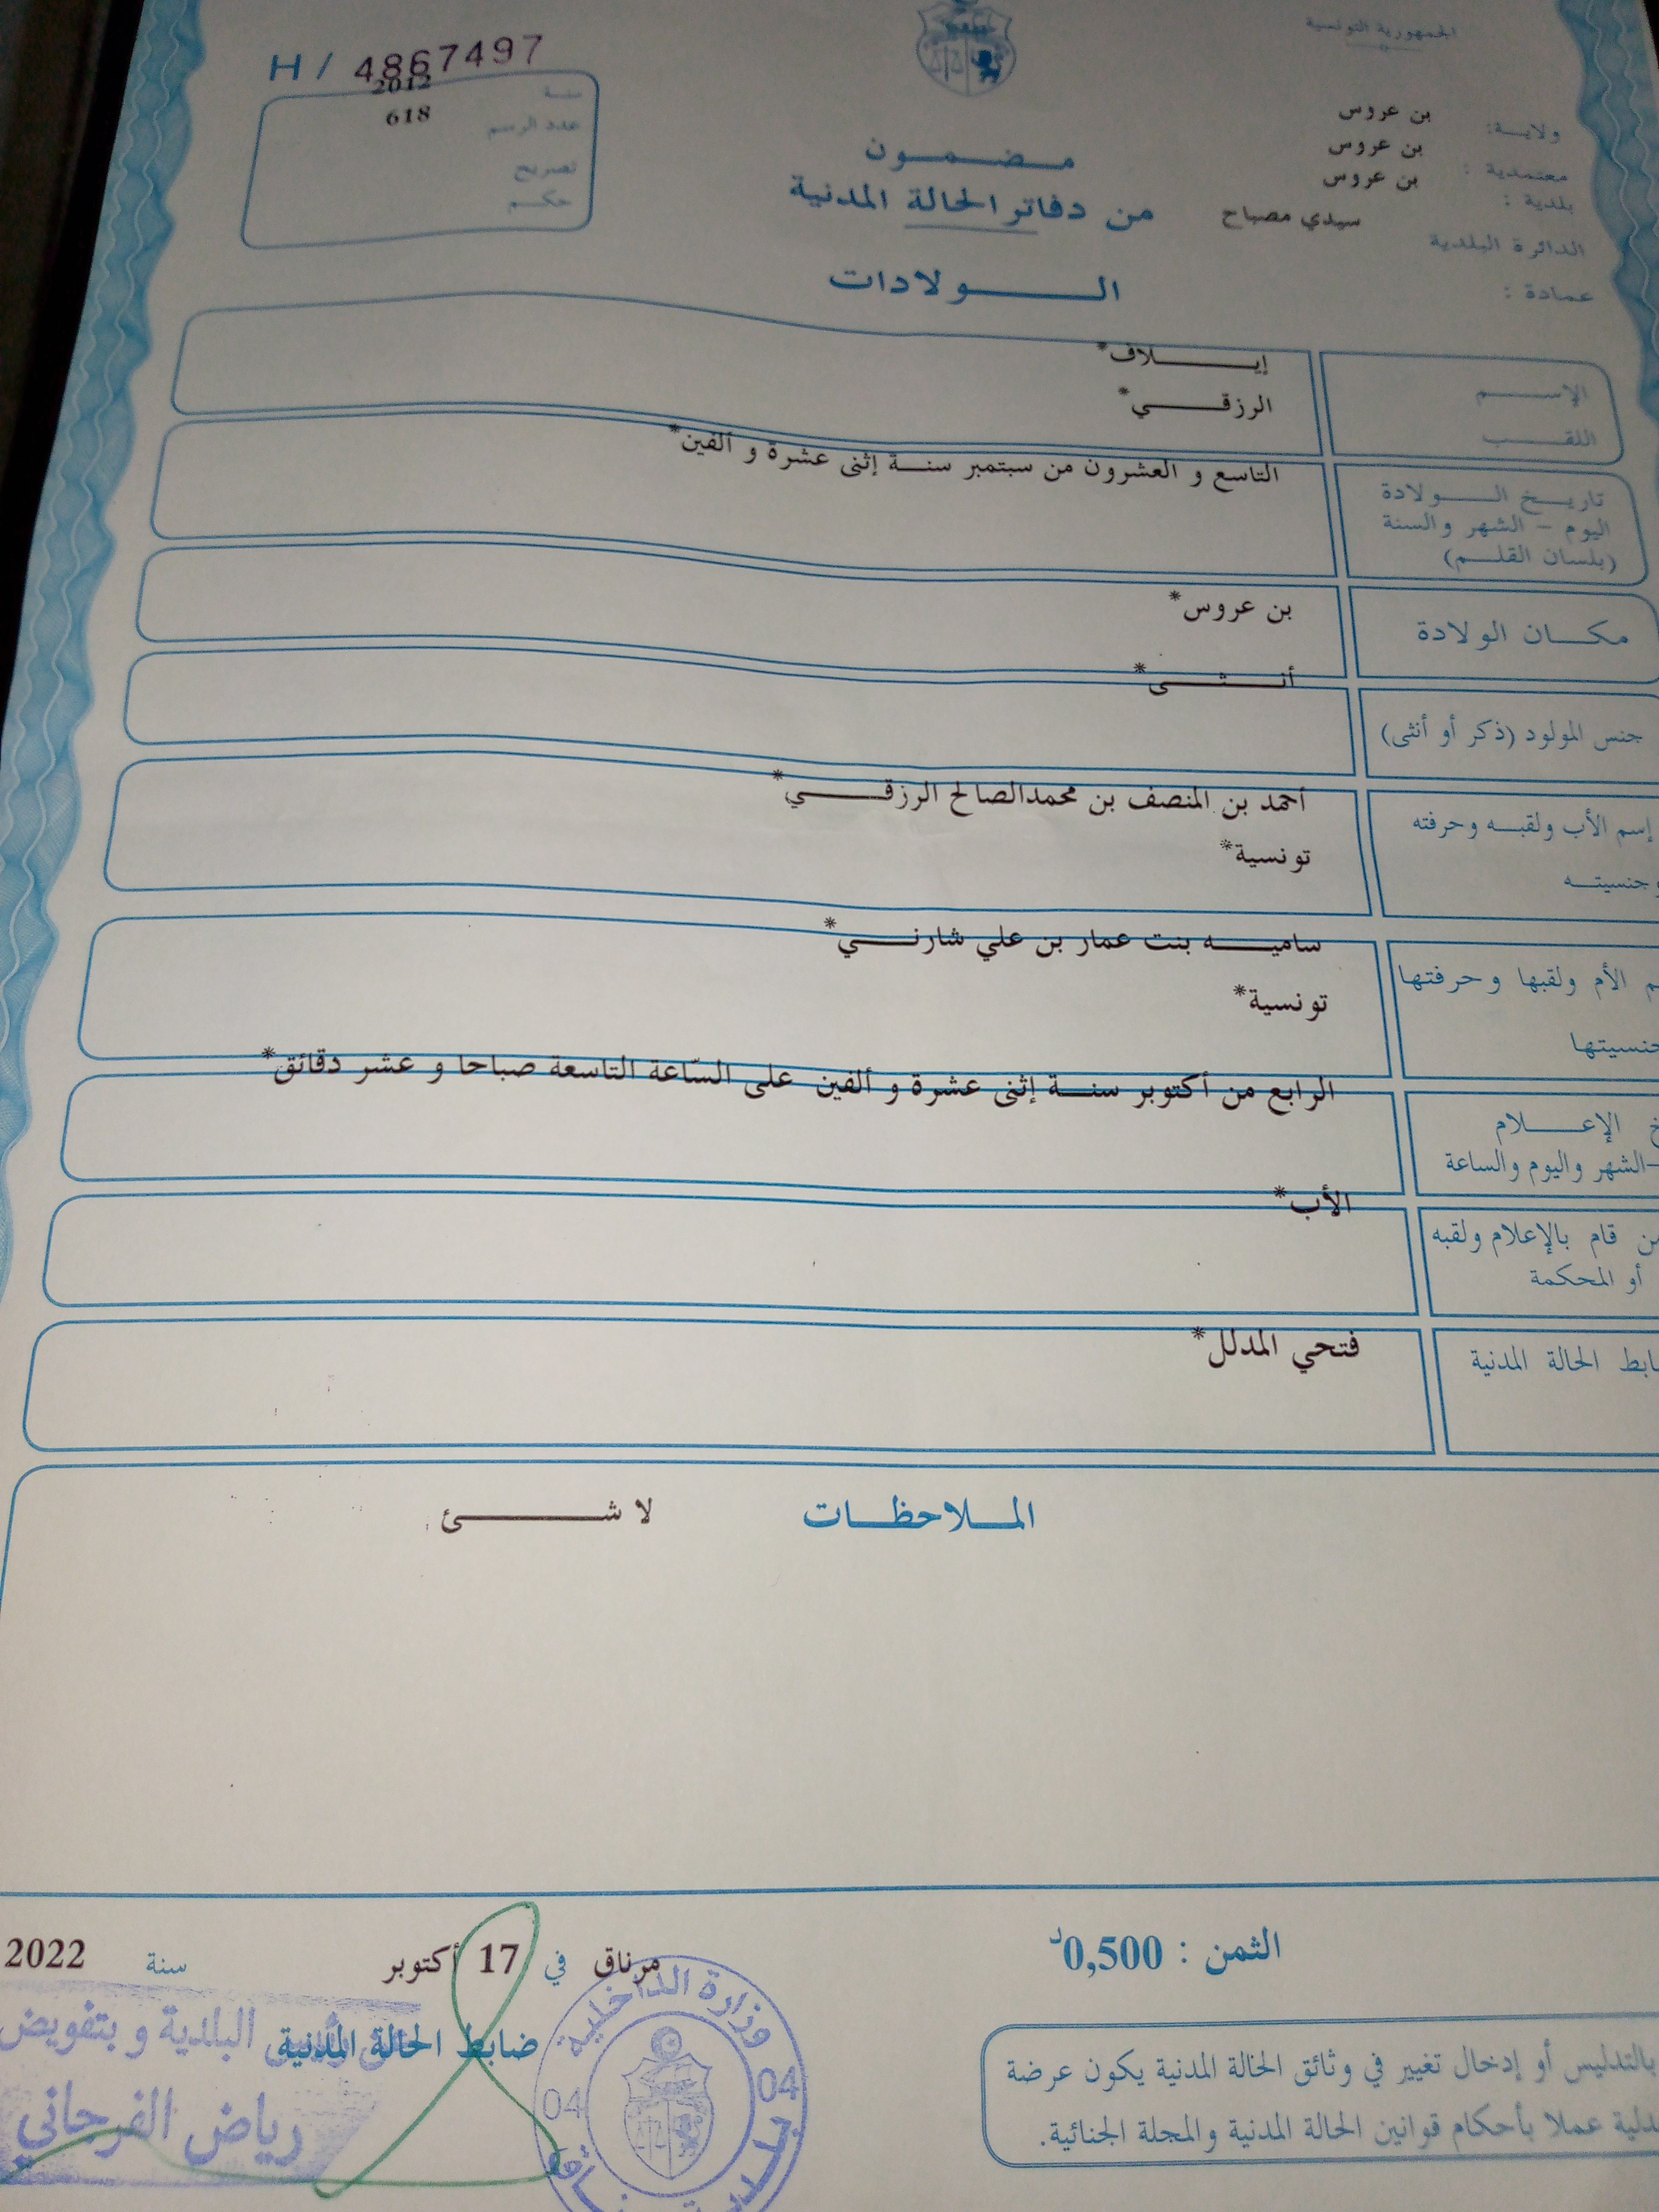 الجمهورية التونسية
H / 4867497
سنة 2012
عدد الرسم 618
تصريح
حكم
ولاية: بن عروس
معتمدية : بن عروس
بلدية : بن عروس
الدائرة البلدية سيدي مصباح
عمادة :
مضمون
من دفاتر الحالة المدنية
الولادات
الإسم إيلاف*
اللقب الرزقي*
تاريخ الولادة
اليوم - الشهر والسنة
(بلسان القلم)
التاسع و العشرون من سبتمبر سنة إثنى عشرة و ألفين*
مكان الولادة بن عروس*
جنس المولود (ذكر أو أنثى) أنثى*
إسم الأب ولقبه وحرفته
وجنسيته
أحمد بن المنصف بن محمدالصالح الرزقي*
تونسية*
م الأم ولقبها وحرفتها
جنسيتها
ساميه بنت عمار بن علي شارني*
تونسية*
خ الإعلام
-الشهر واليوم والساعة
الرابع من أكتوبر سنة إثنى عشرة و ألفين على السّاعة التاسعة صباحا و عشر دقائق*
ن قام بالإعلام ولقبه
أو المحكمة
الأب*
ابط الحالة المدنية فتحي المدلل*
الملاحظات لا شئ
الثمن : 0,500د
مرناق في 17 أكتوبر سنة 2022
ضابط الحالة المدنية
البلدية و بتفويض
رياض الفرجاني
وزارة الداخلية
04 04
بالتدليس أو إدخال تغيير في وثائق الحالة المدنية يكون عرضة
دلية عملا بأحكام قوانين الحالة المدنية والمجلة الجنائية.